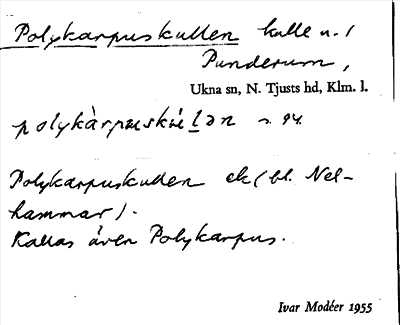 Polykarpuskullen kulle u. /
Punderum,
Ukna sn, N. Tjusts hd, Klm. l.
polykàrpuskúlən s. 94.
Polykarpuskullen ek (bl. Nel-
hammar).
Kallas även Polykarpus.
Ivar Modéer 1955